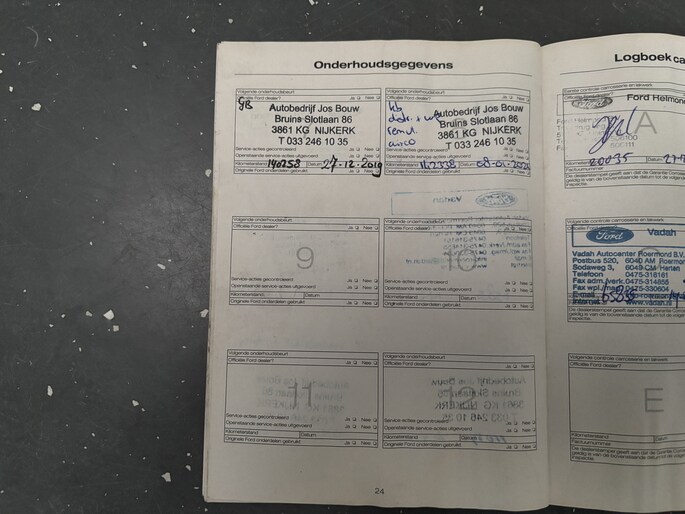 Onderhoudsgegevens
Volgende onderhoudsbeurt
Officiële Ford dealer? Ja Nee
GB
Autobedrijf Jos Bouw
Bruins Slotlaan 86
3861 KG NIJKERK
T 033 246 10 35
Service-acties gecontroleerd Ja Nee
Openstaande service-acties uitgevoerd Ja Nee
Kilometerstand 140258 Datum 27-12-2019
Originele Ford onderdelen gebruikt Ja Nee
Volgende onderhoudsbeurt
Officiële Ford dealer? Ja Nee
Autobedrijf Jos Bouw
Bruins Slotlaan 86
3861 KG NIJKERK
T 033 246 10 35
remvl.
airco
Service-acties gecontroleerd Ja Nee
Openstaande service-acties uitgevoerd Ja Nee
Kilometerstand Datum
Originele Ford onderdelen gebruikt Ja Nee
Volgende onderhoudsbeurt
Officiële Ford dealer? Ja Nee
9
Service-acties gecontroleerd Ja Nee
Openstaande service-acties uitgevoerd Ja Nee
Kilometerstand Datum
Originele Ford onderdelen gebruikt Ja Nee
Volgende onderhoudsbeurt
Officiële Ford dealer? Ja Nee
10
Service-acties gecontroleerd Ja Nee
Openstaande service-acties uitgevoerd Ja Nee
Kilometerstand Datum
Originele Ford onderdelen gebruikt Ja Nee
Volgende onderhoudsbeurt
Officiële Ford dealer? Ja Nee
11
Service-acties gecontroleerd Ja Nee
Openstaande service-acties uitgevoerd Ja Nee
Kilometerstand Datum
Originele Ford onderdelen gebruikt Ja Nee
Volgende onderhoudsbeurt
Officiële Ford dealer? Ja Nee
Service-acties gecontroleerd Ja Nee
Openstaande service-acties uitgevoerd Ja Nee
Kilometerstand Datum
Originele Ford onderdelen gebruikt Ja Nee
24
Logboek ca
Eerste controle carrosserie en lakwerk
Officiële Ford dealer?
Ford Helmond
A
Kilometerstand 20035 Datum
Factuurnummer
De dealerstempel geeft aan dat de Garantie
geldig is van de bovenstaande datum tot de volgende
inspectie.
Volgende controle carrosserie en lakwerk
Ford Vadah
Vadah Autocenter Roermond B.V.
Postbus 520, 6040 AM Roermond
Sodaweg 3, 6049 CM Herten
Telefoon 0475-316161
Fax adm./verk. 0475-314855
Fax wpl./mag. 0475-330604
E-mail
Internet www.vadah.nl
De dealerstempel geeft aan dat de Garantie
geldig is van de bovenstaande datum tot de volgende
inspectie.
Volgende controle carrosserie en lakwerk
Officiële Ford dealer?
E
Kilometerstand Datum
Factuurnummer
De dealerstempel geeft aan dat de Garantie
geldig is van de bovenstaande datum tot de volgende
inspectie.